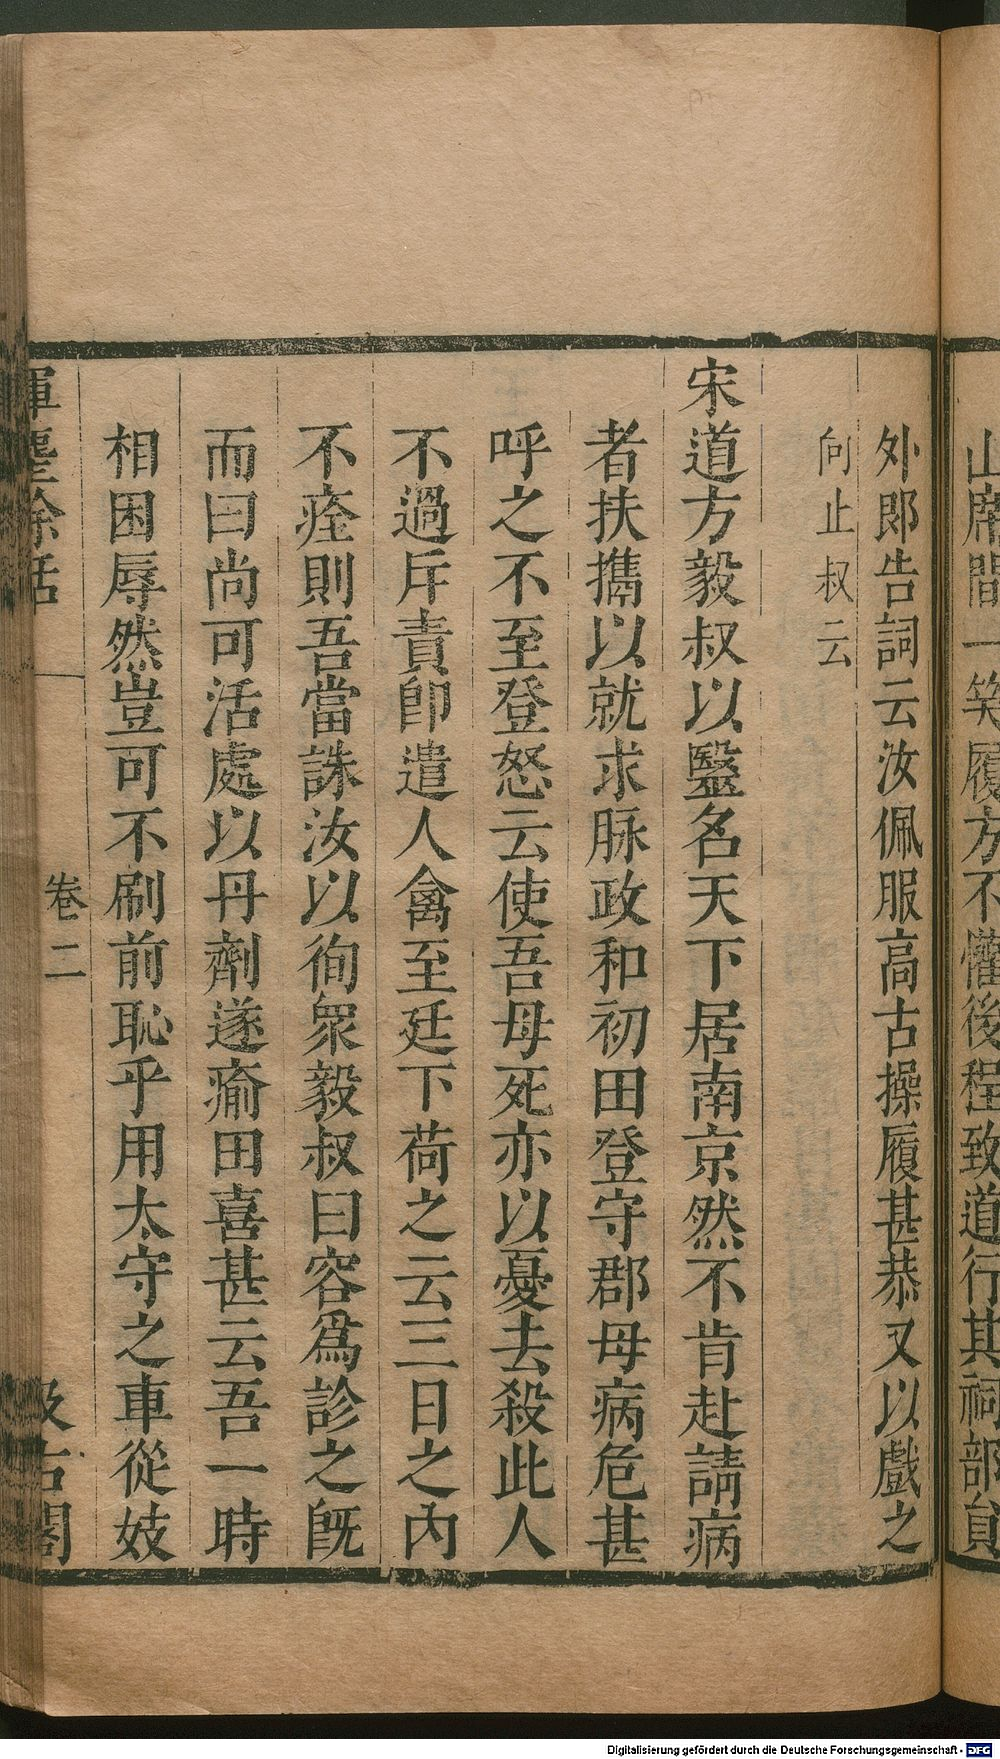 山席間一笑履方不懽後程致道行其祠部員
外郎告詞云汝佩服高古操履甚恭又以戲之
向止叔云
宋道方毅叔以毉名天下居南京然不肯赴請病
者扶攜以就求脉政和初田登守郡母病危甚
呼之不至登怒云使吾母死亦以憂去殺此人
不過斥責卽遣人禽至廷下荷之云三日之內
不痊則吾當誅汝以徇衆毅叔曰容爲診之旣
而曰尚可活處以丹劑遂瘉田喜甚云吾一時
相困辱然豈可不刷前恥乎用太守之車從妓
揮麈餘話
卷二
汲古閣
Digitalisierung gefördert durch die Deutsche Forschungsgemeinschaft - DFG